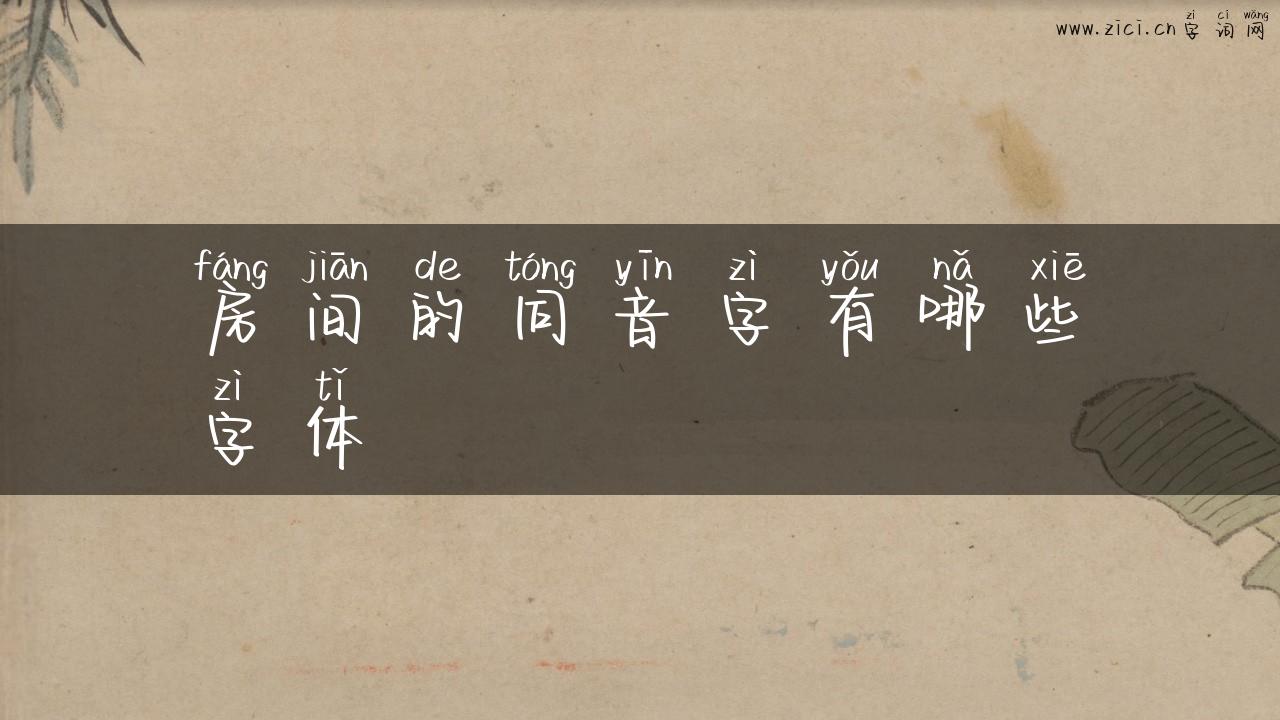 zì cí wǎng
www.zici.cn字词网
fáng jiān de tóng yīn zì yǒu nǎ xiē
房间的同音字有哪些
zì tǐ
字体